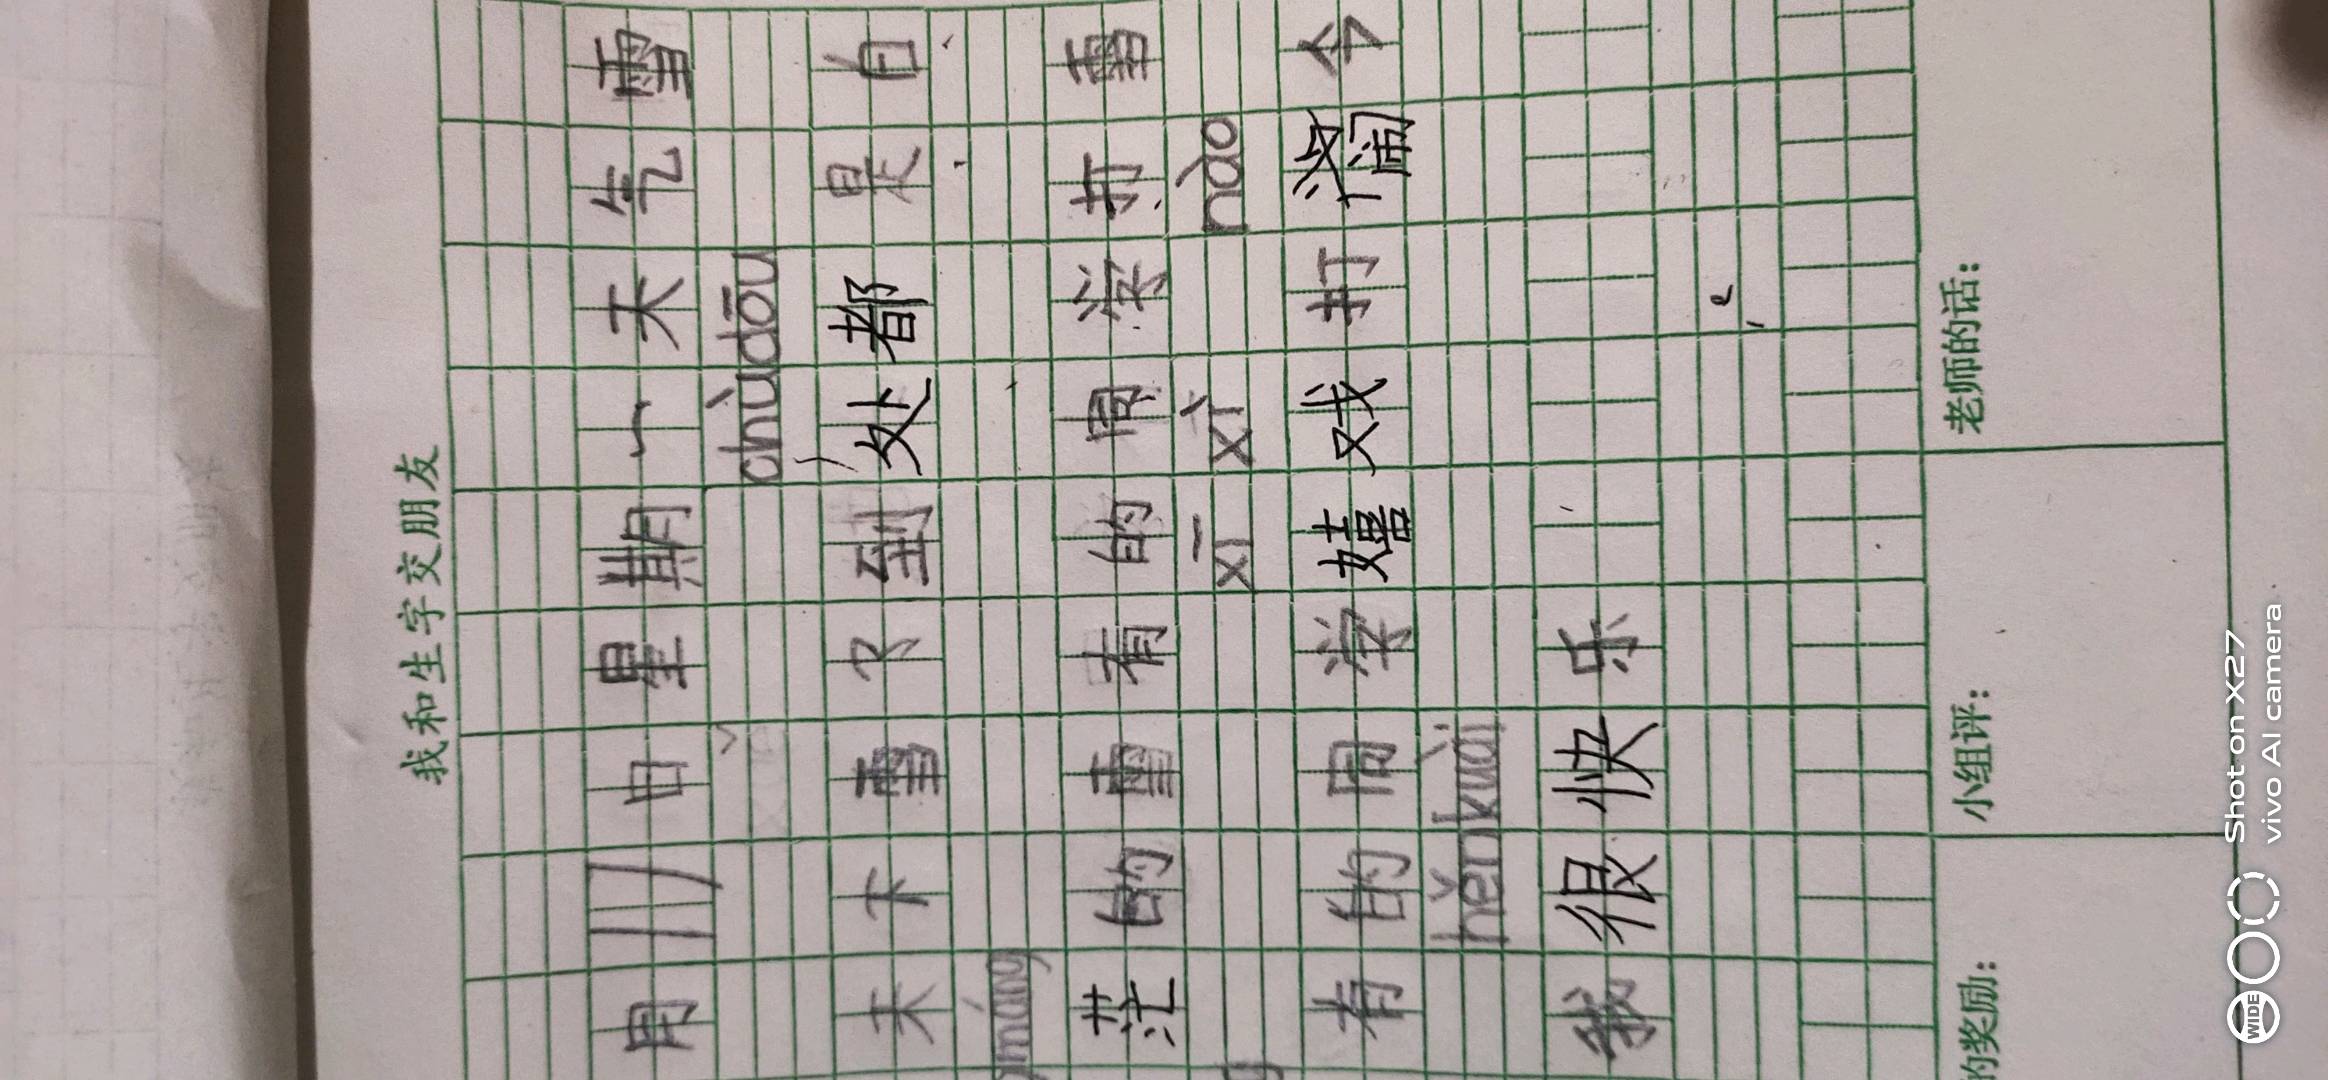 我和生字交朋友
月 11 日 星期一 天气 雪
chùdōu
天下雪了到处都是白
máng
茫的雪有的同学打雪
xī xì nào
有的同学嬉戏打闹今
hěnkuài
我很快乐
的奖励： 小组评： 老师的话：
Shot on X27
vivo AI camera
WIDE